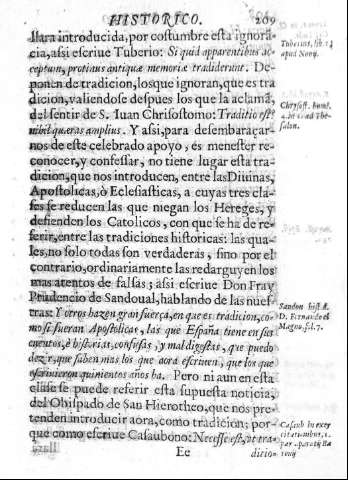 HISTORICO. 209
llara introducida, por costumbre esta ignorā
cia, assi escriue Tuberio: Si quid apparentibus ac-
ceptum, protinus antiquæ memoriæ tradiderunt. De-
ponen de tradicion, los que ignoran, que es tra
dicion, valiendose despues los que la aclamā,
del sentir de S. Iuan Chrisostomo: Traditio est?
nihil quæras amplius. Y assi, para desembaraçar-
nos de este celebrado apoyo, es menester re-
conocer, y confessar, no tiene lugar esta tra-
dicion, que nos introducen, entre las Diuinas,
Apostolicas, ò Eclesiasticas, a cuyas tres cla-
ses se reducen las que niegan los Hereges, y
defienden los Catolicos, con que se ha de re-
ferir, entre las tradiciones historicas: las qua-
les, no solo todas son verdaderas, sino por el
contrario, ordinariamente las redarguyen los
mas atentos de falsas; assi escriue Don Fray
Prudencio de Sandoual, hablando de las nues-
tras: Y otros hazen gran fuerça, en que es tradicion, co-
mo si fueran Apostolicas, las que España tiene en sus
cuentos, è historias, confusas, y mal digestas, que puedo
dezir, que saben mas los que aora escriuen, que los que
escriuieron quinientos años ha. Pero ni aun en esta
clase se puede referir esta supuesta noticia,
del Obispado de San Hierotheo, que nos pre-
tenden introducir aora, como tradicion; por-
que como escriue Casaubono: Necesse est, vt tra-
Ee dicio-
Tuberius, lib. 14
apud Nony.
Chrysost. homil.
4. in
salon.
Sandou hist. R.
D. Fernando el
Magno, fol. 7.
Casaub in exer
citatnibus, 1.
Ba
ronij